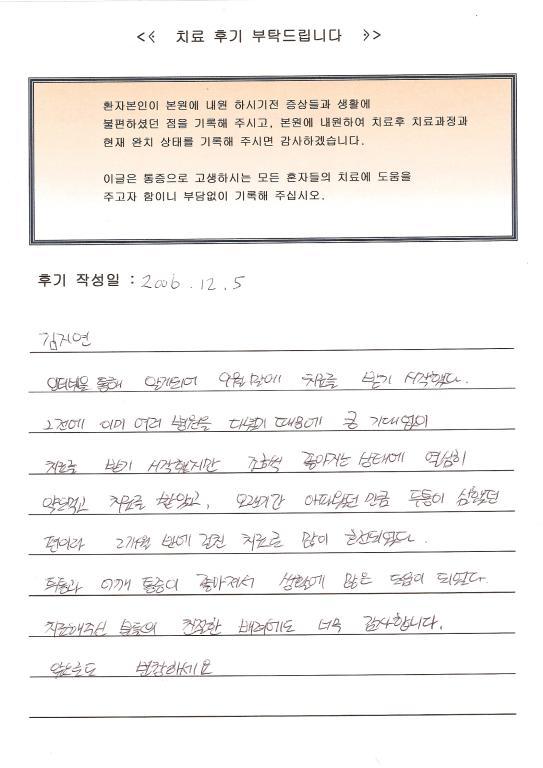 << 치료 후기 부탁드립니다 >>
환자본인이 본원에 내원 하시기전 증상들과 생활에
불편하셨던 점을 기록해 주시고, 본원에 내원하여 치료후 치료과정과
현재 완치 상태를 기록해 주시면 감사하겠습니다.
이글은 통증으로 고생하시는 모든 혼자들의 치료에 도움을
주고자 함이니 부담없이 기록해 주십시오.
후기 작성일 : 2006. 12. 5
김지연
인터넷을 통해 알게되어 9월말에 치료를 받기 시작했다.
그전에 이미 여러 병원을 다녔기 때문에 큰 기대없이
치료를 받기 시작했지만 조금씩 좋아지는 상태에 열심히
약을먹고 치료를 받았고, 오랜기간 아파왔던 만큼 두통이 심했던
편이라 2개월 반에 걸친 치료로 많이 호전되었다.
두통과 어깨 통증이 좋아져서 생활에 많은 도움이 되었다.
치료해주신 분들의 친절한 배려에도 너무 감사합니다.
앞으로도 부탁하세요